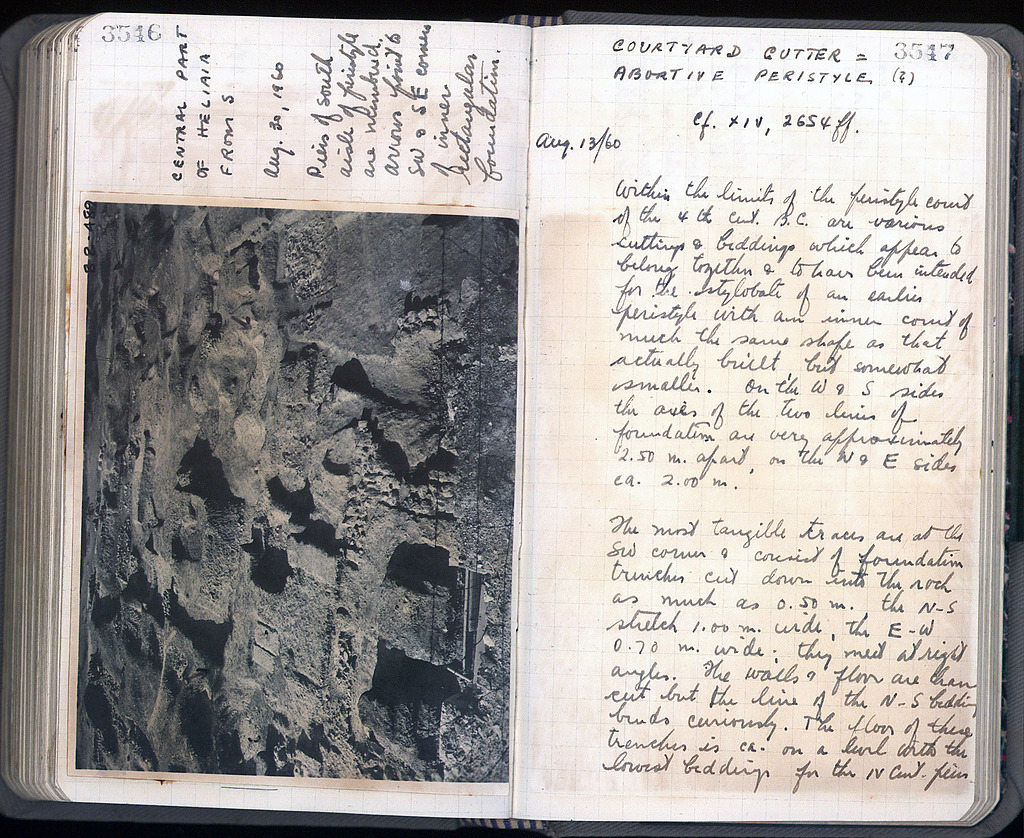 3546
CENTRAL PART
OF HELIAIA
FROM S
Aug. 30, 1960
Piers of south
aisle of peristyle
are numbered.
arrows point to
SW & SE corners
of inner
rectangular
foundation.
3547
COURTYARD GUTTER =
ABORTIVE PERISTYLE (?)
Cf. XIV, 2654 ff.
Aug. 13/60
Within the limits of the peristyle court
of the 4th cent. B.C. are various
cuttings & beddings which appear to
belong together & to have been intended
for the stylobate of an earlier
peristyle with an inner court of
much the same shape as that
actually built but somewhat
smaller. On the W & S sides
the axes of the two lines of
foundation are very approximately
2.50 m. apart, on the N & E sides
ca. 2.00 m.
The most tangible traces are at the
SW corner & consist of foundation
trenches cut down into the rock
as much as 0.50 m. the N-S
stretch 1.00 m. wide, the E-W
0.70 m. wide; they meet at right
angles. The walls & floor are clean
cut but the line of the N-S bedding
bends curiously. The floor of these
trenches is ca. on a level with the
lowest beddings for the IV cent. piers